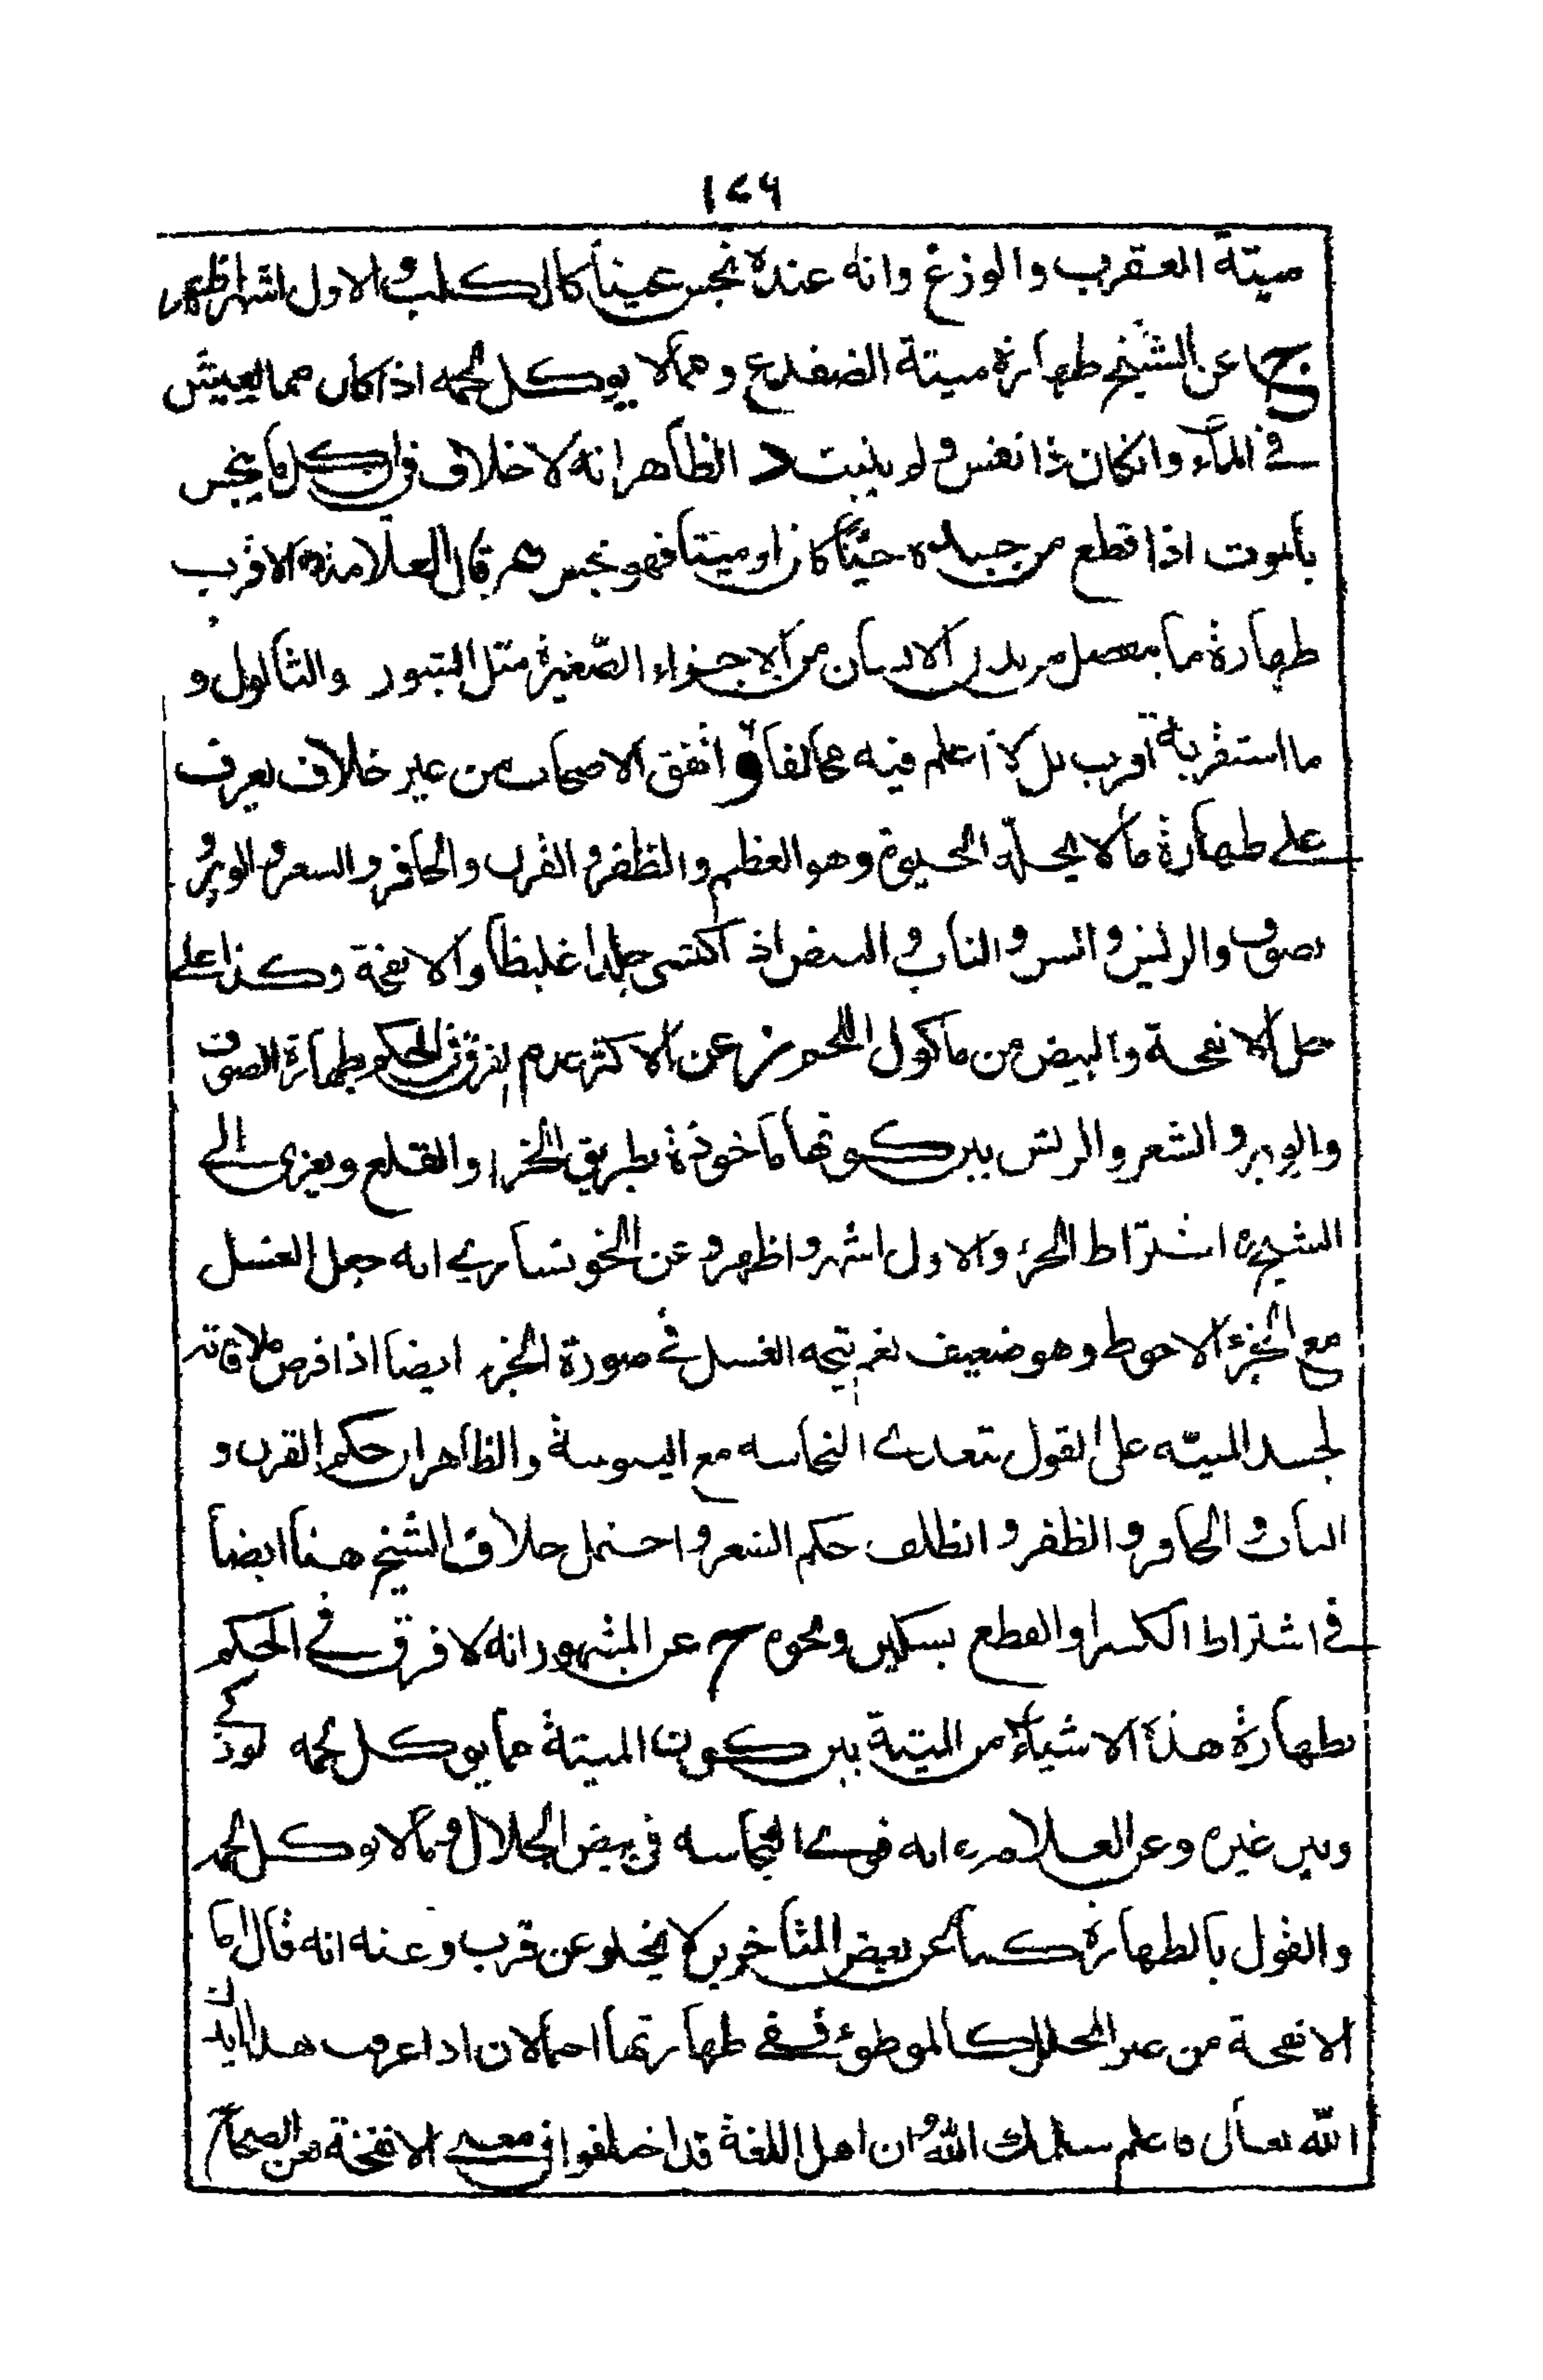 ١٤٦
ميتة العقرب والوزغ وانه عنده نجس عيناً كالكلب والاول اشهر اظهر
ج عن الشيخ طهارة ميتة الضفدع ومما لا يوكل لحمه اذا كان مما يعيش
في الماء وانكان ذا نفس ولم يثبت د الظاهر انه لا خلاف في ان كل ما ينجس
بالموت اذا قطع من جسده حيّاً كان او ميتاً فهو نجس قال العلامة الاقرب
طهارة ما ينفصل من بدن الانسان من الاجزاء الصّغيرة مثل البثور والثالول و
ما استقربه اقرب بل لا اعلم فيه مخالفا و اتفق الاصحاب من غير خلاف يعرف
على طهارة ما لا يحلّه الحيوة وهو العظم والظفر والقرن والحافر والشعر والوبر و
صوف والريش والسن والناب والبيض اذ اكتسى جلدا غليظا والانفحة وكذا على
حل الانفحة والبيض من ماكول اللحم ز عن الاكثر عدم الفرق في الحكم بطهارة الصوف
والوبر والشعر والريش بين كونها ماخوذة بطريق الجز او القلع ويعزى الى
الشيخ ره اشتراط الجز والاول اشهر واظهر وعن الخونساري انه جعل الغسل
مع الجز الاحوط وهو ضعيف نعم يتجه الغسل في صورة الجز ايضا اذا فرض ملاقاته
لجسد الميته على القول بتعدى النجاسه مع اليبوسة والظاهر ان حكم القرن و
الناب والحافر والظفر والظلف حكم الشعر واحتمل خلاف الشيخ هنا ايضاً
في اشتراط الكسر او القطع بسكين ونحوه ح عن المشهور انه لا فرق في الحكم
بطهارة هذه الاشياء من الميتة بين كون الميتة مما يوكل لحمه
وبين غيره وعن العلامه ره انه قوى النجاسه في بيض الجلال ومما لا يوكل لحمه
والقول بالطهارة كما عن بعض المتاخرين لا يخلو عن قرب وعنه انه قال اما
الانفحة من غير المحلل كالموطوء ففي طهارتها احتمالان اذا عرفت هذا ايدك
اللّه تعالى فاعلم سلمك اللّه ان اهل اللغة قد اختلفوا في معنى الانفحة فعن الصحاح